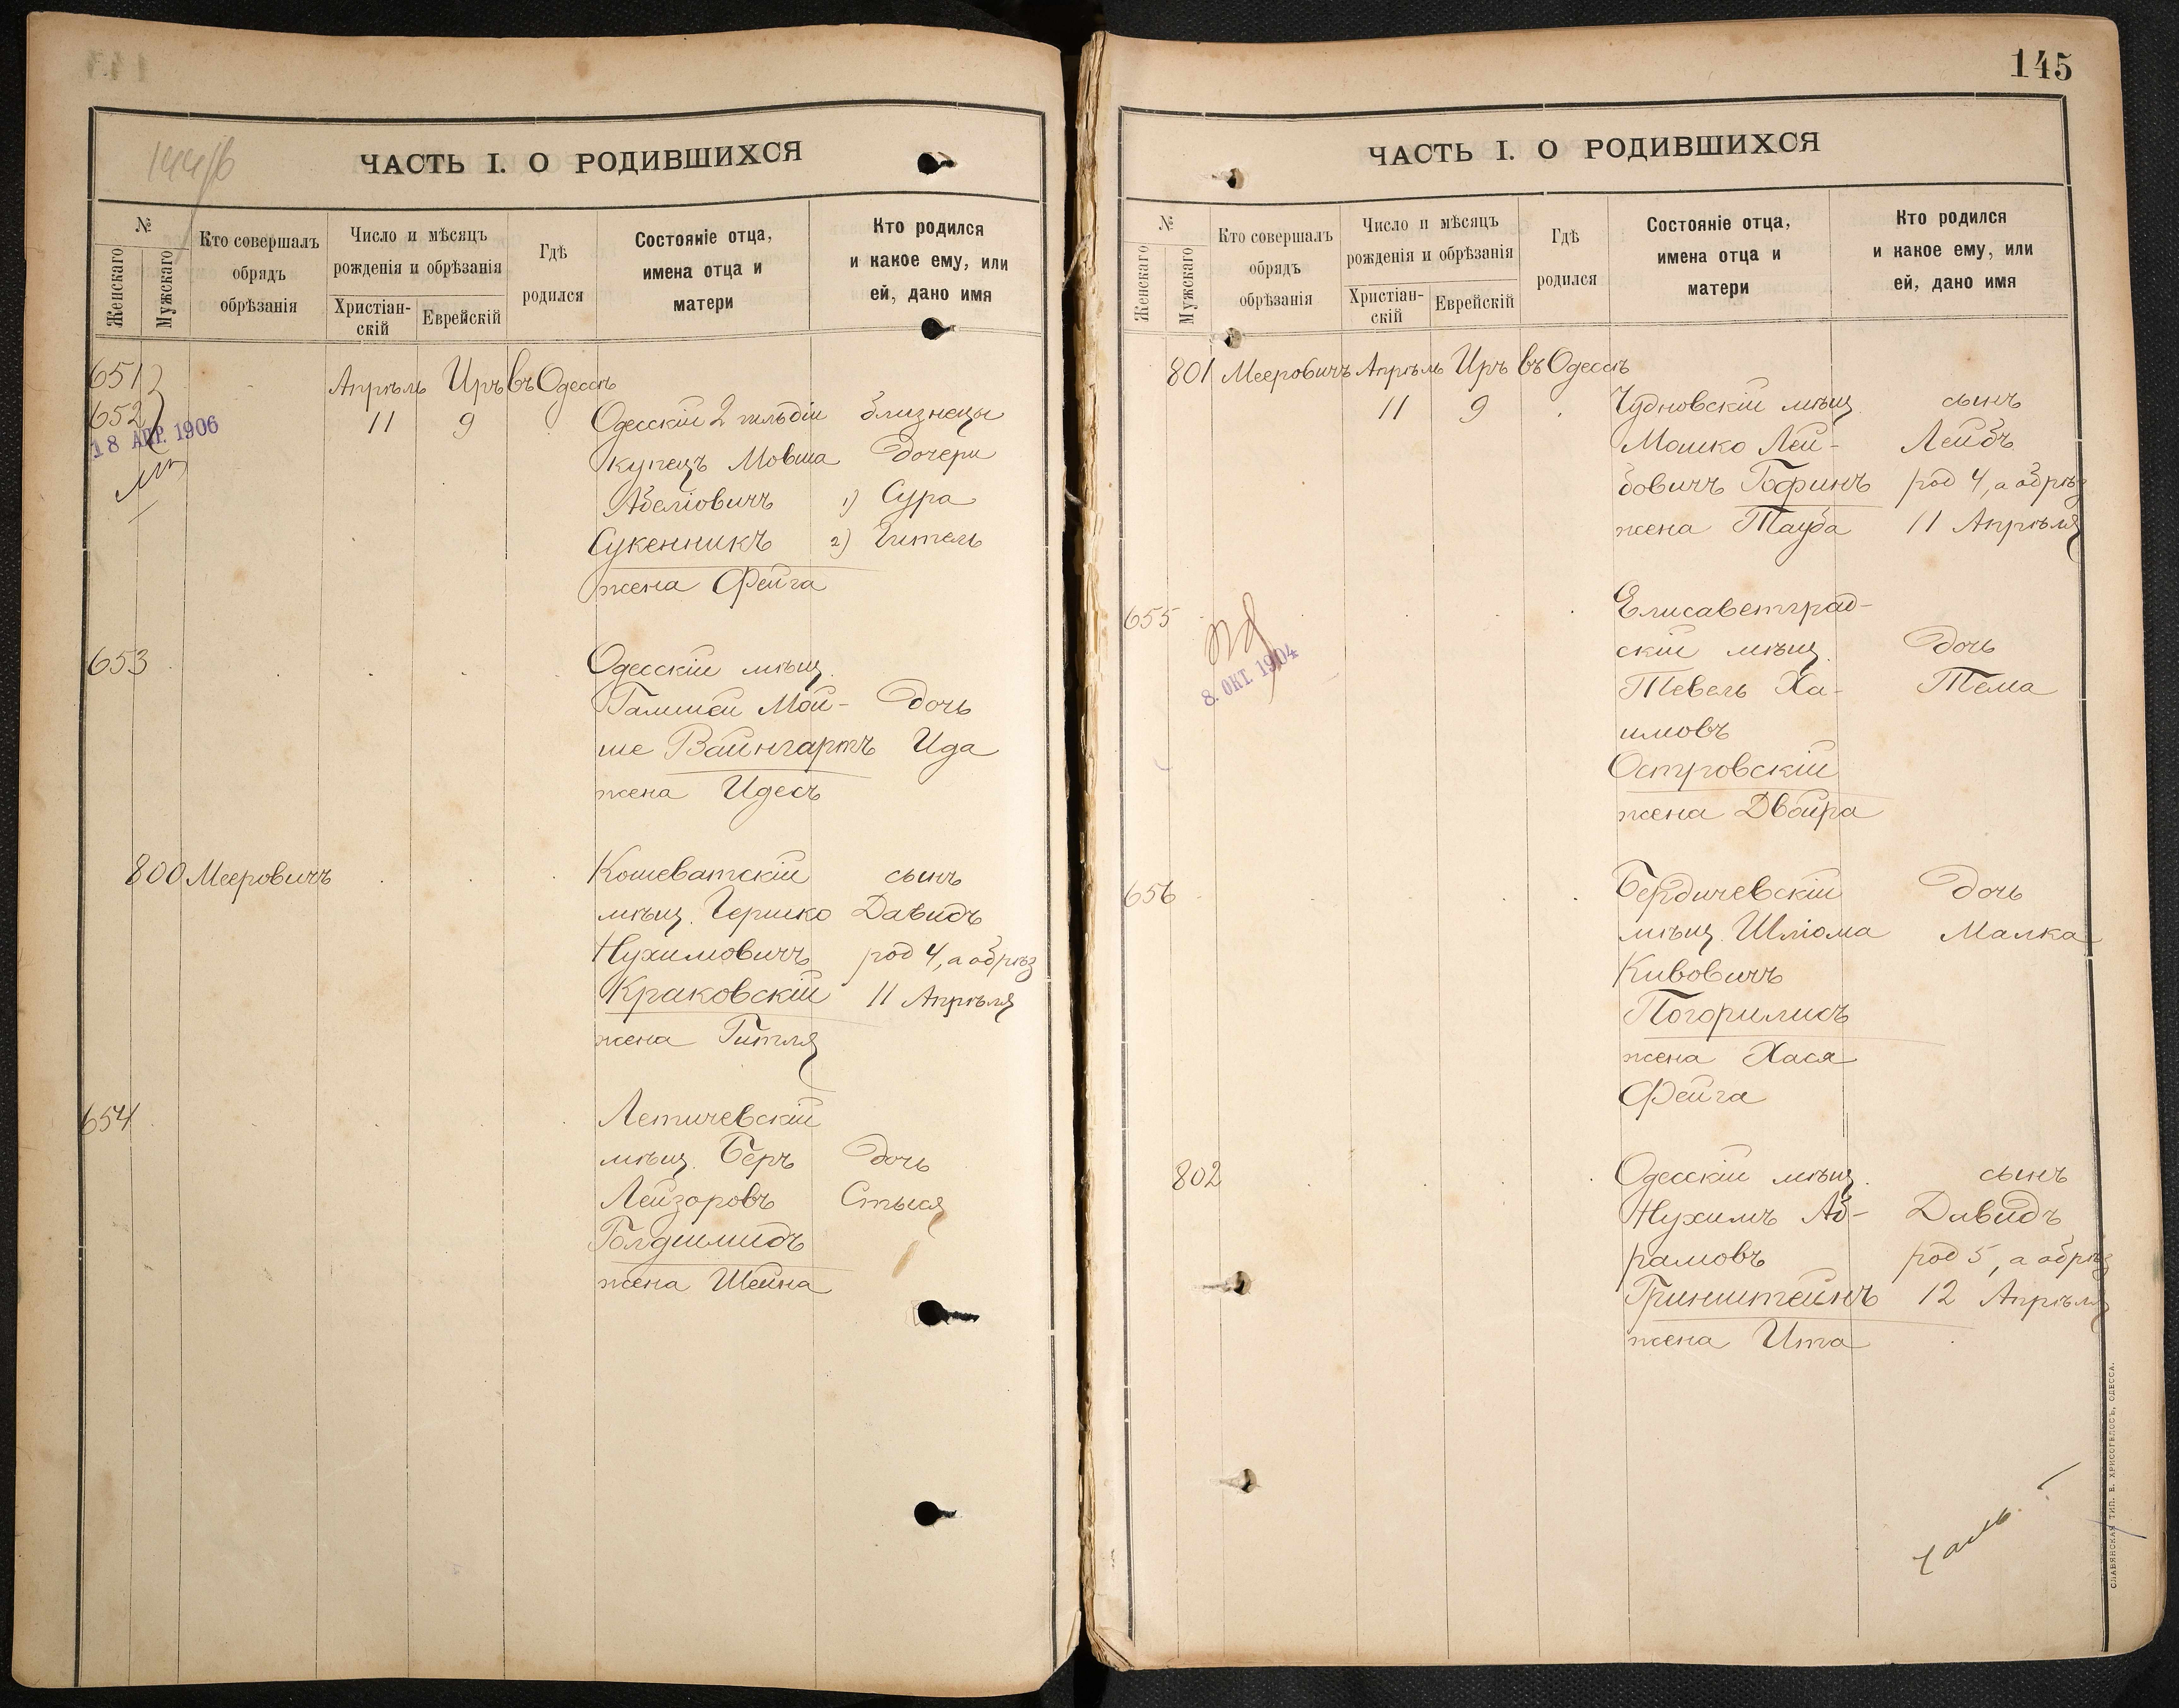 144об
ЧАСТЬ I. О РОДИВШИХСЯ
№
Женскаго
Мужскаго
Кто совершалъ
обрядъ
обрѣзанія
Число и мѣсяцъ
рожденія и обрѣзанія
Христіан-
скій
Еврейскій
Гдѣ
родился
Состояніе отца,
имена отца и
матери
Кто родился
и какое ему, или
ей, дано имя
651
652
18 АПР. 1906
Апрѣль Иръ въ Одессѣ
11 9
Одесскій 2 гильдіи близнецы
купецъ Мовша дочери
Абеліовичъ 1) Сура
Сукенникъ 2) Гитель
жена Фейга
653
Одесскій мѣщ.
Галшей Мой- дочь
ше Вайнгартъ Ида
жена Идесъ
800 Мееровичъ
Кошеватскій сынъ
мѣщ. Гершко Давидъ
Нухимовичъ род 4, а обрѣз
Краковскій 11 Апрѣля
жена Гитля
654
Летичевскій
мѣщ. Беръ дочь
Лейзоровъ Стыся
Голдшмидъ
жена Шейна
145
ЧАСТЬ I. О РОДИВШИХСЯ
№
Женскаго
Мужскаго
Кто совершалъ
обрядъ
обрѣзанія
Число и мѣсяцъ
рожденія и обрѣзанія
Христіан-
скій
Еврейскій
Гдѣ
родился
Состояніе отца,
имена отца и
матери
Кто родился
и какое ему, или
ей, дано имя
801 Мееровичъ Апрѣль Иръ въ Одессѣ
11 9
Чудновскій мѣщ. сынъ
Мошко Лей- Лейбъ
бовичъ Гофинъ род 4, а обрѣз
жена Тауба 11 Апрѣля
655
8. ОКТ. 1904
Елисаветград-
скій мѣщ. дочь
Тевель Ха- Тема
имовъ
Островскій
жена Двойра
656
Бердичевскій дочь
мѣщ. Шлiома Малка
Кивовичъ
Погорилисъ
жена Хася
Фейга
802
Одесскій мѣщ. сынъ
Нухимъ Аб- Давидъ
рамовъ род 5, а обрѣз
Гринштейнъ 12 Апрѣля
жена Ита
СЛАВЯНСКАЯ ТИП. Е. ХРИСОГЕЛОСЪ, ОДЕССА.